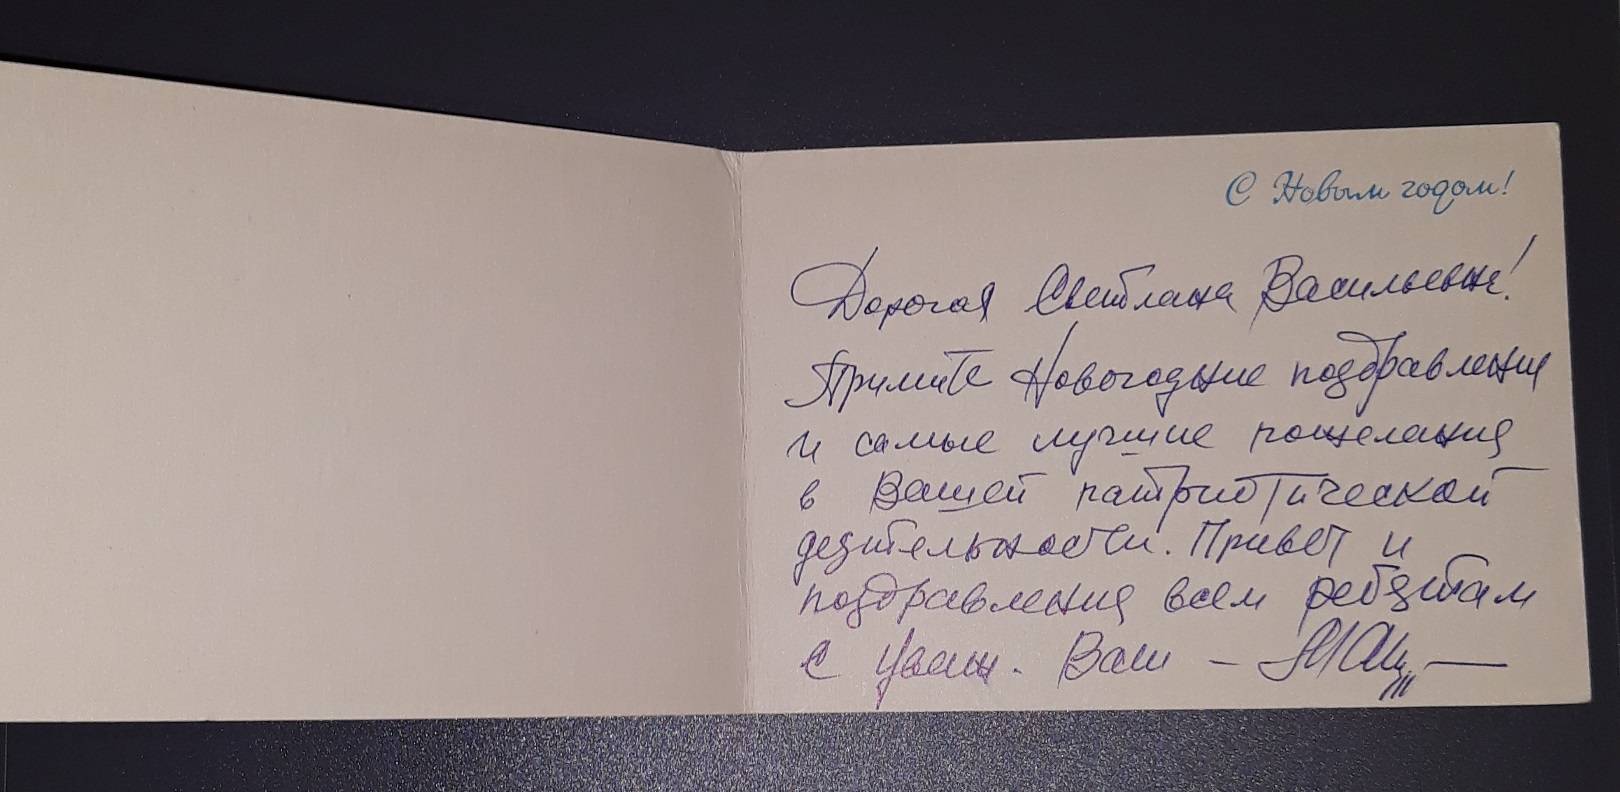 С Новым годом!
Дорогая Светлана Васильевна!
Примите Новогодние поздравления
и самые лучшие пожелания
в Вашей патриотической
деятельности. Привет и
поздравления всем ребятам
с уваж. Ваш —